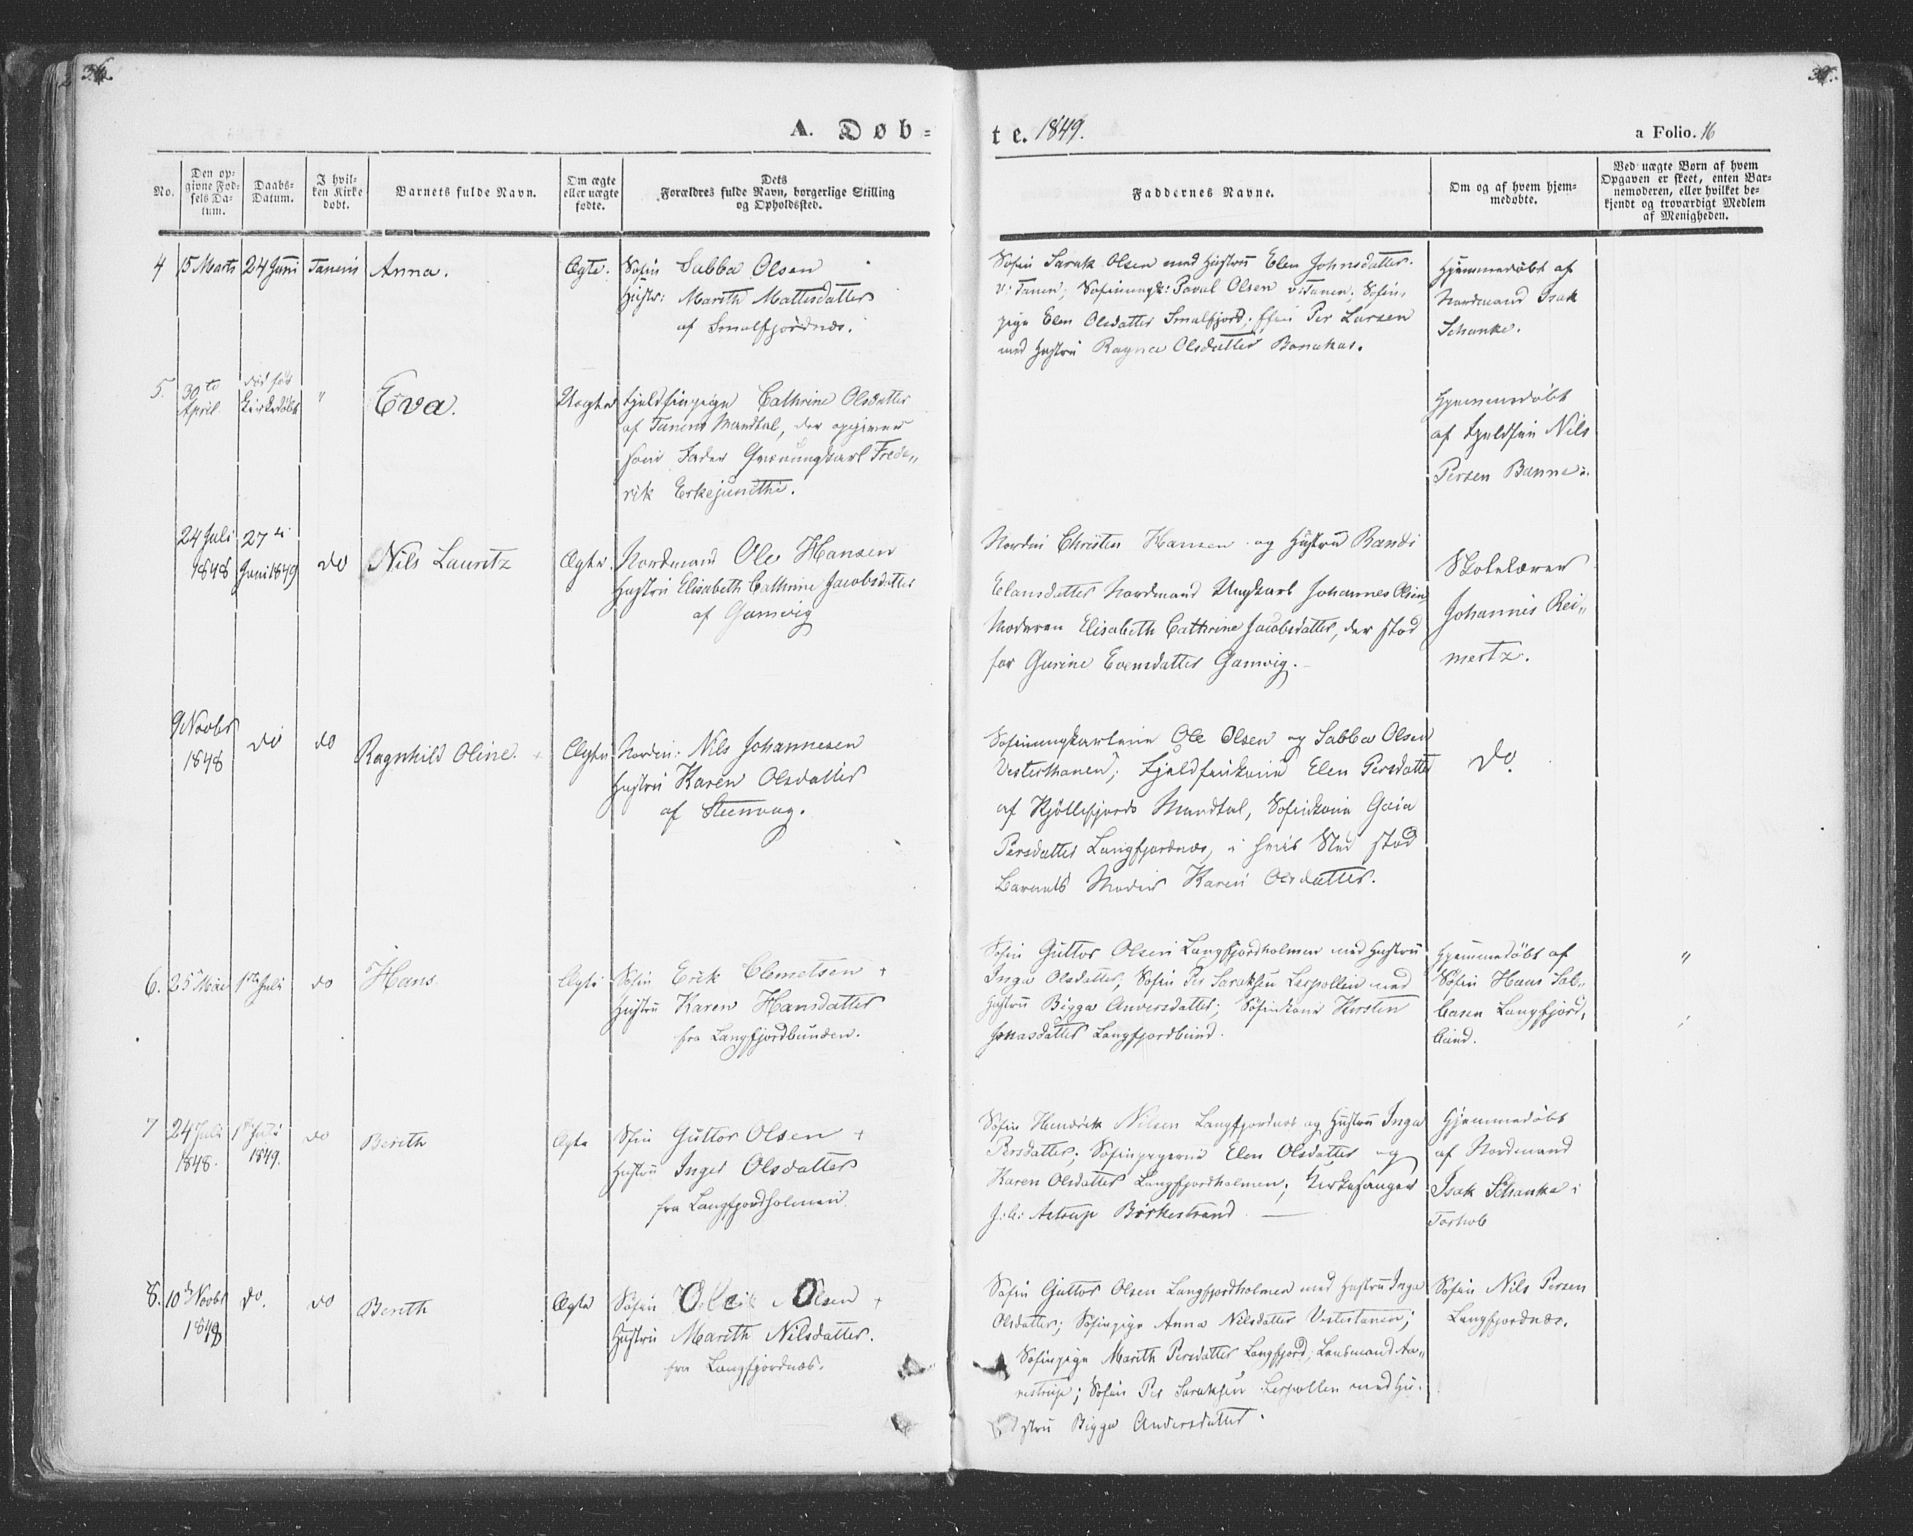 36.
37.
A. Døb-
te. 1849.
a Folio. 16
No.
Den op-
givne Fød-
sels Da-
tum.
Daabs-
Datum.
I hvil-
ken Kirke
døbt.
Barnets fulde Navn.
Om ægte
eller uægte
fødte.
Dets
Forældres fulde Navn, borgerlige Stilling
og Opholdssted.
Faddernes Navne.
Om og af hvem hjem-
medøbte.
Ved uægte Børn af hvem
Opgaven er skeet, enten Bar-
nemoderen, eller hvilket be-
kjendt og troværdigt Medlem
af Menigheden.
4 15 Marts 24 Juni Tanens Anna. Ægte. Søfin Sabba Olsen
Hustr: Marith Mattesdatter
af Smalfjordnæs.
Søfin Sarak Olsen med Hustru Elen Johnsdatter
v: Tanen; Søfinungk: Poval Olsen v: Tanen; Søfin,
pige Elen Olsdatter Smalfjord; Per Larsen
med Hustru Ragna Olsdatter Bonakas.
Hjemmedøbt af
Nordmand Isak
Schanke.
5. 30te
April. død før
Kirkedøbt " Eva. Uægte Fjeldfinpige Cathrine Olsdatter
af Tanens Mandtal, der opgiver
som Fader Qvænungkarl Frede-
rik Erkejunthi.
Hjemmedøbt
af Fjeldfin Nils
Persen Banne.
24 Juli
1848 27de
Juni 1849 do Nils Lauritz Ægte. Nordmand Ole Hansen
Hustru Elisabeth Cathrine Jacobsdatter
af Gamvig
Nordm Christen Hansen og Hustru Randi
Elansdatter Nordmand Ungkarl Johannes Olsen,
Moderen Elisabeth Cathrine Jacobsdatter, der stod
for Gurine Evensdatter Gamvig.
Skolelærer
Johannes Rei-
mertz.
9 Novbr
1848 do do Ragnhild Oline. Ægte Nordm: Nils Johannesen
Hustru Karen Olsdatter
af Steenvaag.
Søfinungkarlene Ole Olsen og Sabba Olsen
Vestertanen; Fjeldfinkone Elen Persdatter
af Kjøllefjords Mandtal, Søfinkone Gaia
Persdatter Langfjordnæs, i hvis Sted stod
Barnets Moder Karen Olsdatter.
do.
6. 25 Mai 1ste Juli do Hans. Ægte Søfin Erik Clemetsen +
Hustru Karen Hansdatter
fra Langfjordbunden.
Søfin Guttor Olsen Langfjordholmen med Hustru
Inga Olsdatter, Søfin Per Saraksen Leirpollen med
Hustru Bigga Andersdatter; Søfinkone Kirsten
Jonasdatter Langfjordbund.
Hjemmedøbt af
Søfin Hans Sab-
basen Langfjord,
bund.
"
7 24 Juli
1848. 1ste Juli
1849. do Berith Ægte Søfin Guttor Olsen +
Hustru Inger Olsdatter
fra Langfjordholmen
Søfin Hendrik Nilsen Langfjordnæs og Hustru Inga
Persdatter; Søfinpigerne Elen Olsdatter og
Karen Olsdatter Langfjordholmen; Kirkesanger
J: C: Astrup Birkestrand.
Hjemmedøbt
af Nordmand
Isak Schanke i
Torhob
8. 10de Novbr
1848 do. do Berith Ægte Søfin Ole Olsen +
Hustru Marith Nilsdatter.
fra Langfjordnæs.
Søfin Guttor Olsen Langfjordholmen med Hustru Inga
Olsdatter; Søfinpige Anna Nilsdatter Vestertanen;
Søfinpige Marith Persdatter Langfjord, Lensmand Aa-
restrup; Søfin Per Saraksen Leirpollen med Hu-
stru Bigga Andersdatter.
Søfin Nils Persen
Langfjordnæs.